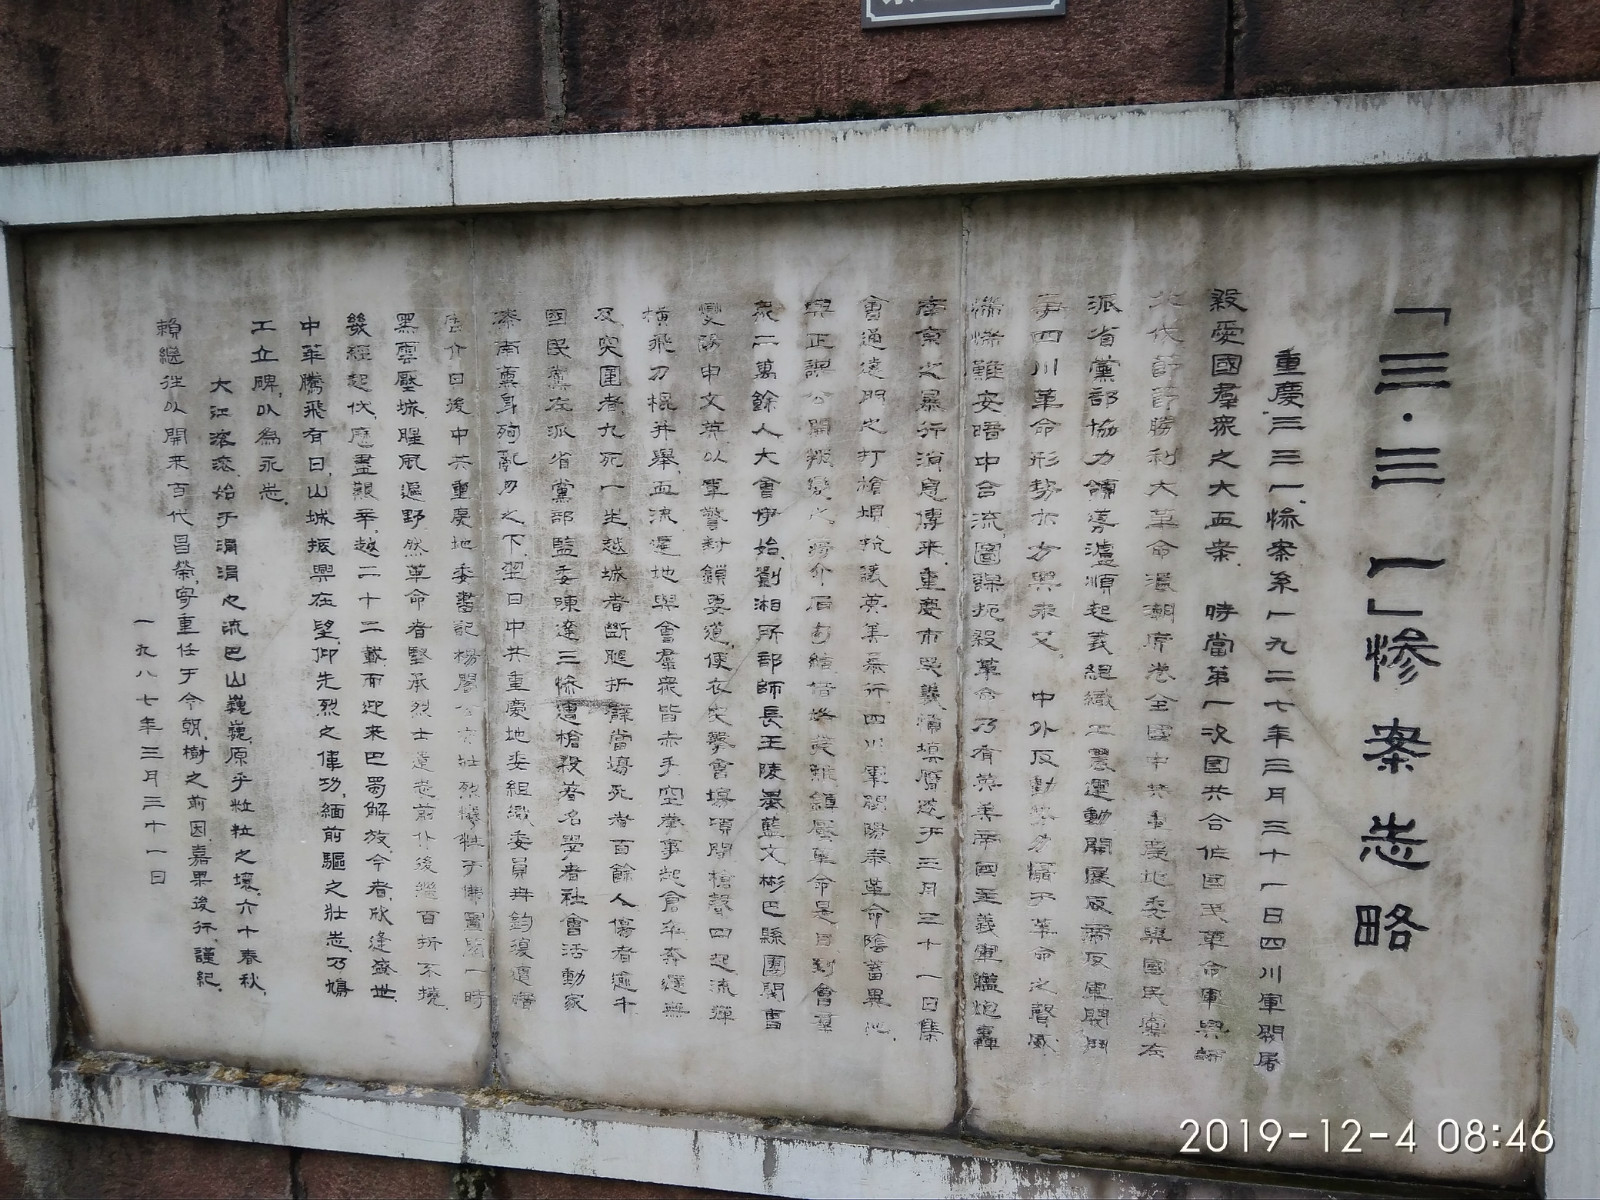 「三·三一」惨案志略
重慶三三一惨案系一九二七年三月三十一日四川軍閥屠
殺愛國羣衆之大血案. 時當第一次國共合作國民革命軍興師
北伐節節勝利大革命浪潮席卷全國中共重慶地委與國民黨左
派省黨部協力領導瀘順起義組織工農運動開展反帝反軍閥鬥
爭四川革命形勢方興未艾. 中外反動勢力懼于革命之聲威
惴惴難安暗中合流圖謀扼殺革命乃有英美帝國主義軍艦炮轟
南京之暴行消息傳来重慶市民義憤填膺遂于三月三十一日集
會通遠門外打槍壩抗議英美暴行四川軍閥陽奉革命陰蓄異心.
衆二萬餘人大會伊始劉湘所部師長王陵基藍文彬巴縣團閥曹
燮陽申文英以軍警封鎖要道便衣夾擊會場頃間槍聲四起流彈
橫飛刀棍并舉血流遍地與會羣衆皆赤手空拳事起倉卒奔避無
及突圍者九死一生越城者斷腿折臂當場死者百餘人傷者逾千
國民黨左派省黨部監委陳達三惨遭槍殺著名學者社會活動家
漆南薰身殉亂刃之下翌日中共重慶地委組織委員冉鈞復遭殺
害介日後中共重慶地委書記楊闇公亦壯烈犧牲于佛圖關一時
黑雲壓城腥風遍野然革命者堅承烈士遺志前仆後繼百折不撓
幾經起伏歷盡艱辛越二十二載而迎来巴蜀解放今者欣逢盛世
中華騰飛有日山城振興在望仰先烈之偉功緬前驅之壯志乃鳩
工立碑以為永志.
大江滚滚始于涓涓之流巴山巍巍原乎粒粒之壤六十春秋
賴繼往以開来百代昌榮寄重任于今朝樹之前因嘉果後行謹紀.
一九八七年三月三十一日
2019-12-4 08:46